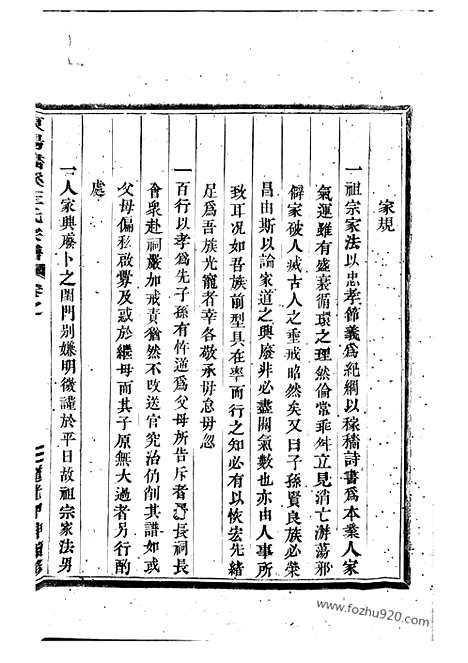 家規
一祖宗家法以忠孝節義爲紀綱以稼穡詩書爲本業人家
氣運雖有盛衰循環之理然倫常乖舛立見消亡游蕩邪
僻家破人烕古人之垂戒昭然矣又曰子孫賢良族必榮
昌由斯以論家道之興廢非必盡關氣數也亦由人事所
致耳况如吾族前型具在率而行之知必有以恢宏先緒
足爲吾族光寵者幸各敬承毋怠毋忽
一百行以孝爲先子孫有忤逆爲父母所告斥者房長祠長
會衆赴祠嚴加戒責猶然不攺送官究治仍削其譜如或
父母偏私啟釁及或於繼母而其子原無大過者另行酌
處
一人家興廢卜之閨門别嫌明微謹於平日故祖宗家法男
王氏宗譜 卷之一
www.fozhu920.com